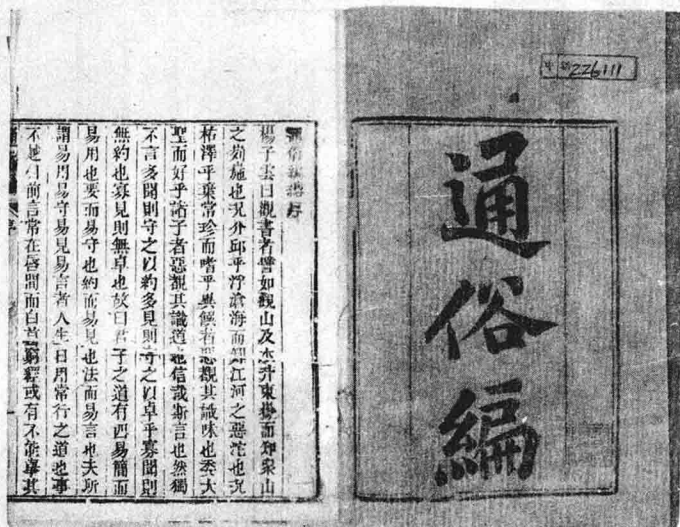 通俗編
226111
通俗編序
楊子雲曰觀書者譬如觀山及水升東嶽而知衆山
之峛崺也況介邱乎浮滄海而知江河之惡沱也況
枯澤乎棄常珍而嗜乎異饌者惡覩其識味也委大
聖而好乎諸子者惡覩其識道也信哉斯言也然獨
不言多聞則守之以約多見則守之以卓乎寡聞則
無約也寡見則無卓也故曰君子之道有四易簡而
易用也要而易守也約而易見也法而易言也夫所
謂易用易守易見易言者人生日用常行之道也事
不越目前言常在唇間而白首 釋或有不能舉其